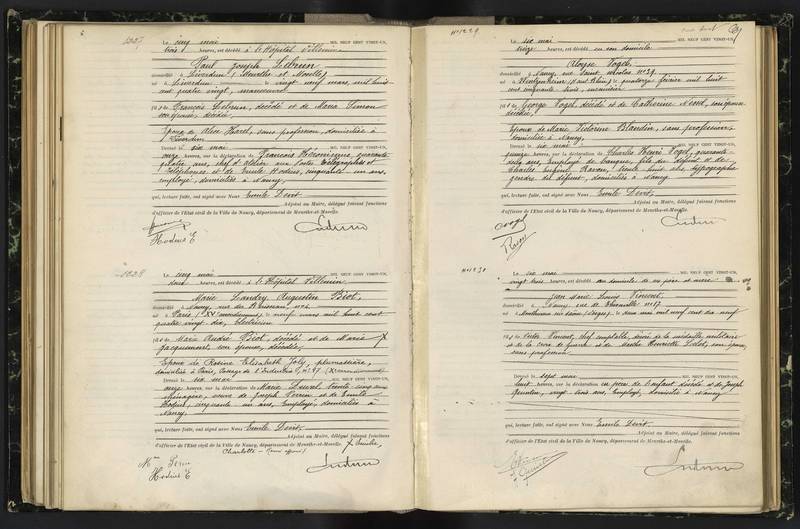 6
1227
Le cinq mai MIL NEUF CENT VINGT-UN,
trois heures, est décédé à l'Hôpital Villemin
Paul Joseph Lebrun
domicilié à Liverdun (Meurthe et Moselle)
né à Liverdun le vingt neuf mars mil huit
cent quatre vingt, manoeuvre
fils de François Lebrun, décédé et de Maria
son épouse, décédée
Epoux de Alice Harel, sans profession, domiciliée à
Liverdun
Dressé le six mai MIL NEUF CENT VINGT-UN,
onze heures, sur la déclaration de François quarante
ans, chef d'atelier aux Postes Télégraphes et
Téléphones et de Emile Hodius, cinquante un ans,
employé, domiciliés à Nancy,
qui, lecture faite, ont signé avec Nous Emile Devit,
Adjoint au Maire, délégué faisant fonctions
d'officier de l'Etat civil de la Ville de Nancy, département de Meurthe-et-Moselle.
Hodius E
1228
Le cinq mai MIL NEUF CENT VINGT-UN,
heures, est décédé à l'Hôpital Villemin
Marie Landry Augustin Biot
domicilié à Nancy, rue du
né à Paris, (XV arrondissement) le neuf mars mil huit cent
quatre vingt dix, Electricien
fils de Marie André Biot, décédé et de Maria X
Jacquemont, son épouse, décédée
Epoux de Rosine Elisabeth Joly, plumassière,
domiciliée à Paris, Passage de l'Industrie
Dressé le six mai MIL NEUF CENT VINGT-UN,
onze heures, sur la déclaration de Marie trente cinq ans
ménagère, veuve de Joseph Perrin et de Emile
Hodius, cinquante un ans, Employé, domiciliés à
Nancy,
qui, lecture faite, ont signé avec Nous Emile Devit,
Adjoint au Maire, délégué faisant fonctions
d'officier de l'Etat civil de la Ville de Nancy, département de Meurthe-et-Moselle.
Charlotte
Hodius E
N° 1229
Le six mai MIL NEUF CENT VINGT-UN,
heures, est décédé en son domicile
Aloyse Vogel
domicilié à Nancy, rue Saint Nicolas N° 29
né à (Haut Rhin) le quatorze février mil huit
cent cinquante trois, menuisier
fils de George Vogel décédé et de Catherine son épouse
décédée,
Epoux de Marie Victorine Blandin, sans profession,
domiciliée à Nancy,
Dressé le six mai MIL NEUF CENT VINGT-UN,
quinze heures, sur la déclaration de Charles Henri Vogel, quarante
cinq ans, Employé de banque, fils du défunt et de
Charles Ravon, trente huit ans, typographe
gendre du défunt, domiciliés à Nancy
qui, lecture faite, ont signé avec Nous Emile Devit,
Adjoint au Maire, délégué faisant fonctions
d'officier de l'Etat civil de la Ville de Nancy, département de Meurthe-et-Moselle.
Vogel
Ravon
N° 1230
Le six mai MIL NEUF CENT VINGT-UN,
vingt trois heures, est décédé au domicile de ses père et mère
Jean Marie Louis Vincent
domicilié à Nancy, rue de
né à (Vosges) le deux mai mil neuf cent dix neuf
fils de Victor Vincent, chef comptable, décoré de la médaille militaire
et de la croix de guerre et de Marthe Henriette son épouse,
sans profession
Dressé le sept mai MIL NEUF CENT VINGT-UN,
huit heures, sur la déclaration du père de l'enfant décédé et de Joseph
vingt trois ans, Employé, domicilié à Nancy
qui, lecture faite, ont signé avec Nous Emile Devit,
Adjoint au Maire, délégué faisant fonctions
d'officier de l'Etat civil de la Ville de Nancy, département de Meurthe-et-Moselle.